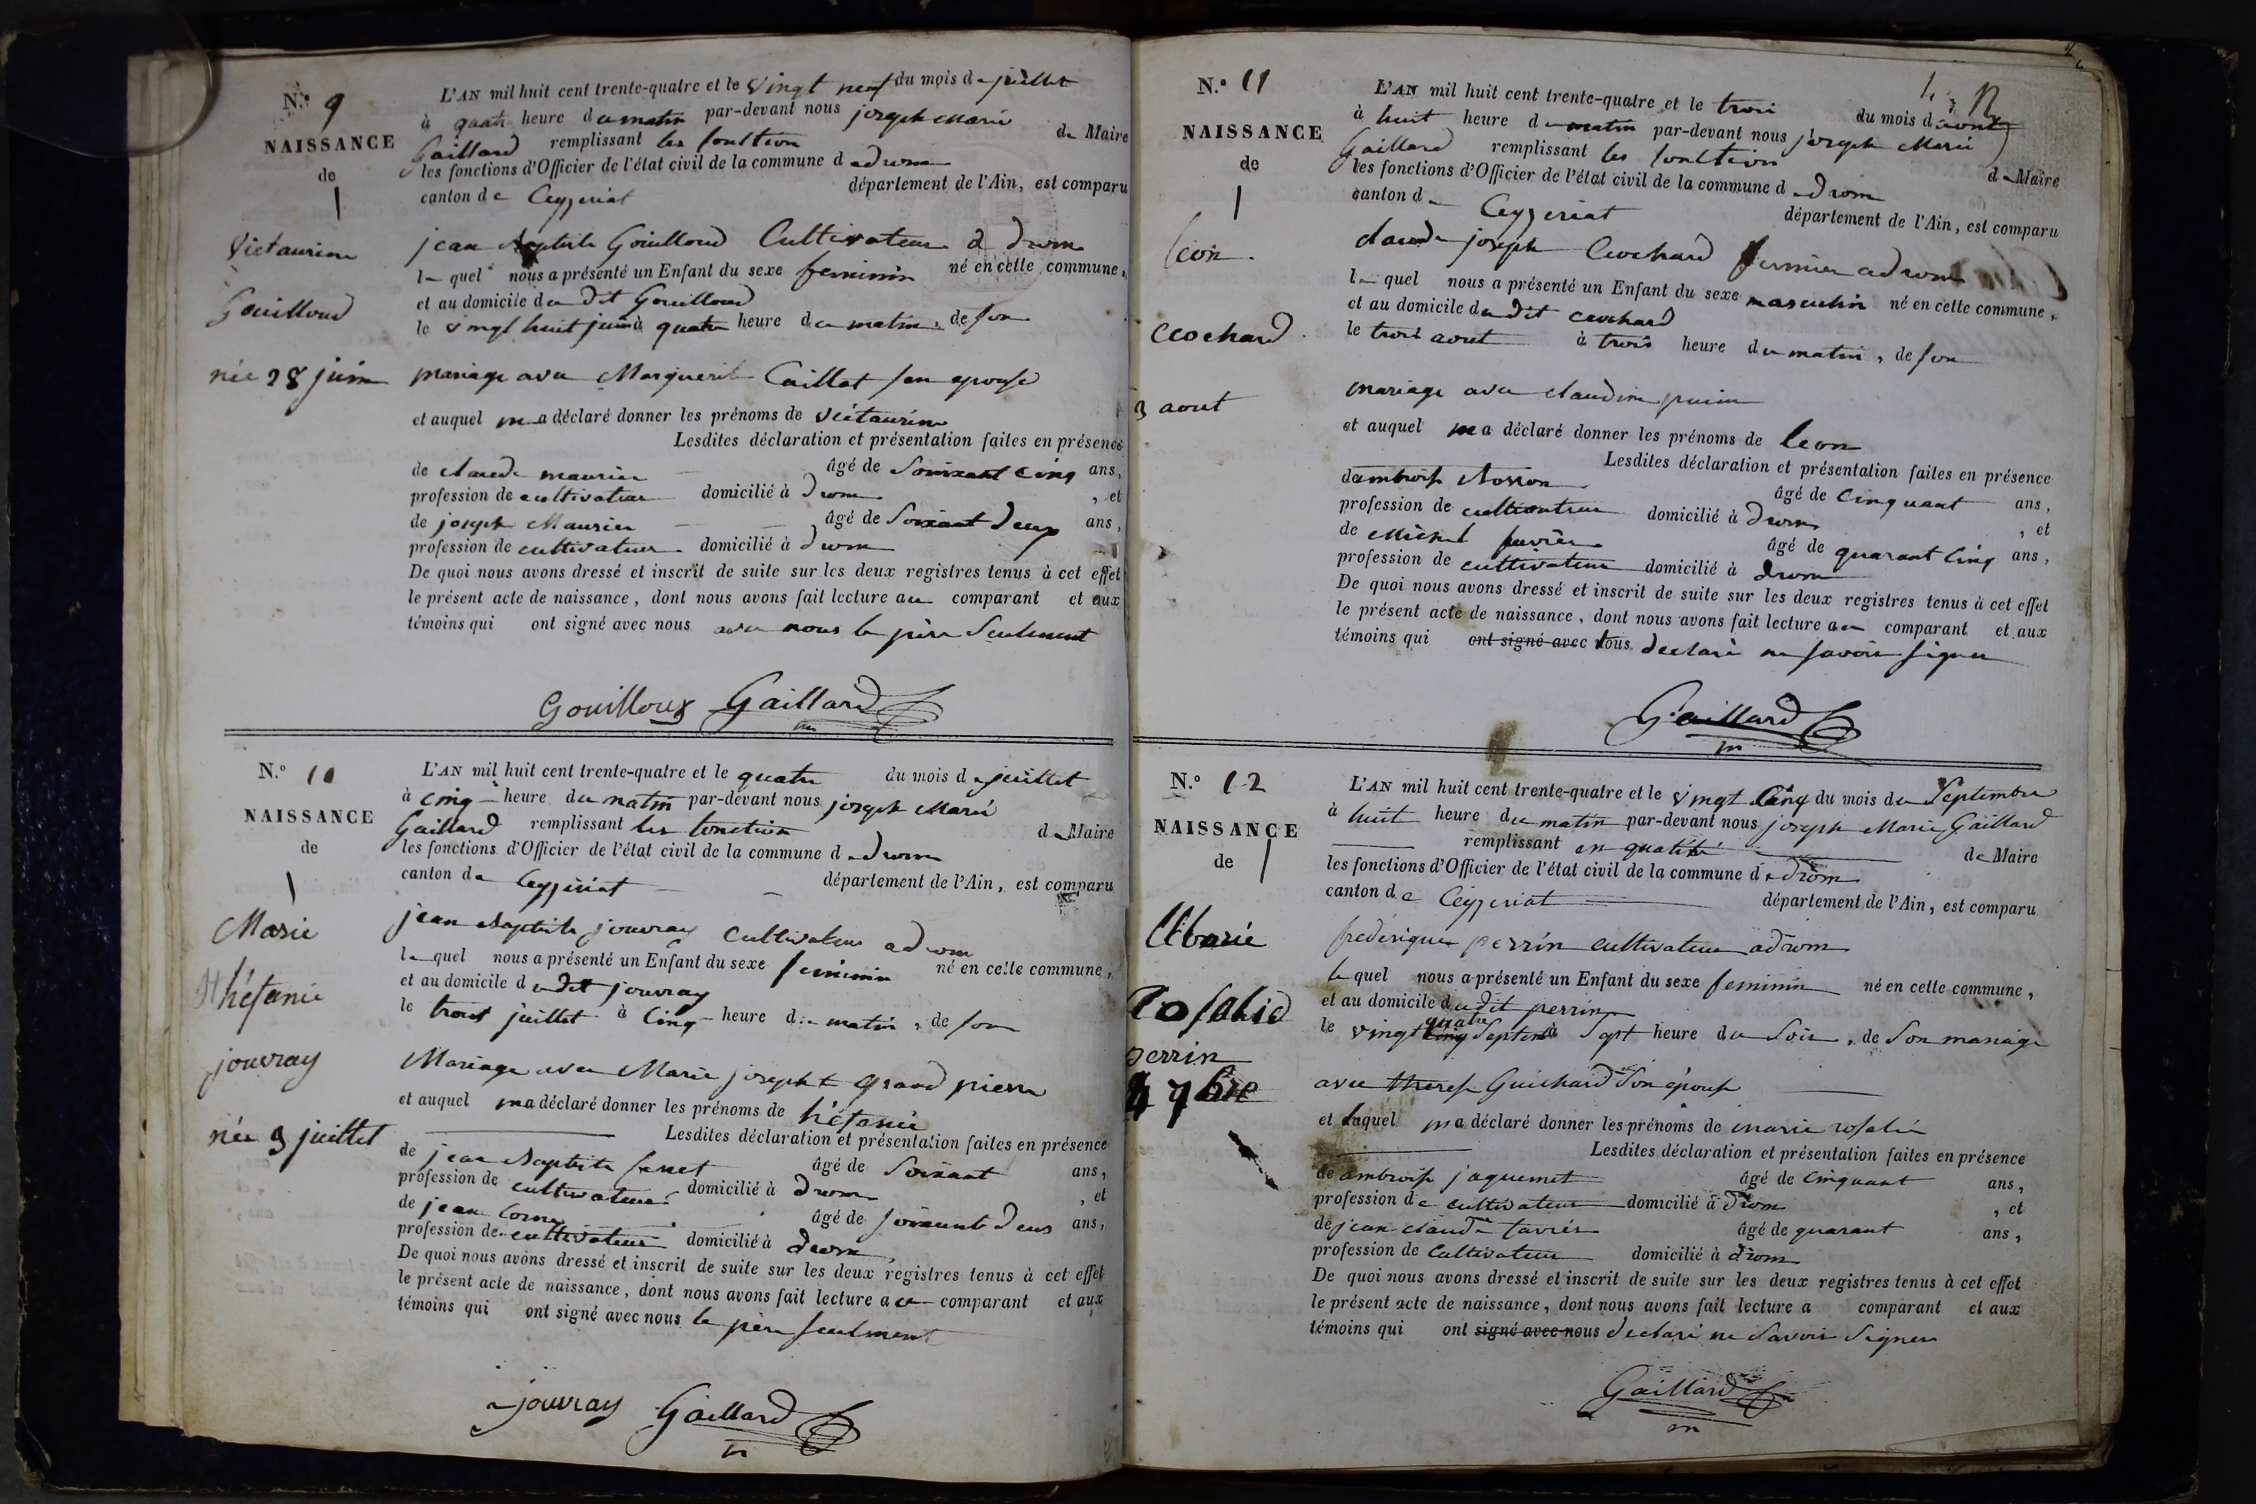 N.º 9
NAISSANCE
de
Victaurine
Gouilloud
née 28 juin
L'AN mil huit cent trente-quatre et le vingt neuf du mois de juillet
à quatre heure du matin par-devant nous joseph Marie
Gaillard remplissant les fonction de Maire
les fonctions d'Officier de l'état civil de la commune de drom
canton de Ceyzeriat département de l'Ain, est comparu
jean Baptiste Gouilloud Cultivateur a drom
le quel nous a présenté un Enfant du sexe feminin né en cette commune,
et au domicile du dit Gouilloud
le vingt huit juin à quatre heure du matin, de son
mariage avec Marguerite Caillat son epouse
et auquel m a déclaré donner les prénoms de victaurine
Lesdites déclaration et présentation faites en présence
de claude maurier âgé de Soixant cinq ans,
profession de cultivateur domicilié à drom, et
de joseph Maurier âgé de Soixant deux ans,
profession de cultivateur domicilié à drom
De quoi nous avons dressé et inscrit de suite sur les deux registres tenus à cet effet
le présent acte de naissance, dont nous avons fait lecture au comparant et aux
témoins qui ont signé avec nous avec nous le père Seulement
Gouilloux Gaillard
N.º 10
NAISSANCE
de
Marie
héfanie
jouvray
née 3 juillet
L'AN mil huit cent trente-quatre et le quatre du mois de juillet
à cinq heure du matin par-devant nous joseph Marie
Gaillard remplissant les fonction de Maire
les fonctions d'Officier de l'état civil de la commune de drom
canton de Ceyzériat département de l'Ain, est comparu
jean Baptiste jouvray cultivateur a drom
le quel nous a présenté un Enfant du sexe feminin né en cette commune,
et au domicile du dit jouvray
le trois juillet à Cinq heure du matin, de son
Mariage avec Marie josepht grand pierre
et auquel m a déclaré donner les prénoms de héfanie
Lesdites déclaration et présentation faites en présence
de jean Baptiste âgé de Soixant ans,
profession de cultivateur domicilié à drom, et
de jean âgé de soixante deux ans,
profession de cultivateur domicilié à drom,
De quoi nous avons dressé et inscrit de suite sur les deux registres tenus à cet effet
le présent acte de naissance, dont nous avons fait lecture a ce comparant et aux
témoins qui ont signé avec nous le père seulment
jouvray Gaillard
N.º 11
NAISSANCE
de
leon
crochard
3 aout
L'AN mil huit cent trente-quatre et le trois du mois d aout
à huit heure du matin par-devant nous joseph Marie
Gaillard remplissant les fonction de Maire
les fonctions d'Officier de l'état civil de la commune de drom
canton de Ceyzeriat département de l'Ain, est comparu
claude joseph Crochard fermier a drom
le quel nous a présenté un Enfant du sexe masculin né en cette commune,
et au domicile du dit crochard
le trois aout à trois heure du matin, de son
mariage avec claudine
et auquel m a déclaré donner les prénoms de leon
Lesdites déclaration et présentation faites en présence
dambroise âgé de Cinquant ans,
profession de cultivateur domicilié à drom, et
de Michel âgé de quarant Cinq ans,
profession de cultivateur domicilié à drom
De quoi nous avons dressé et inscrit de suite sur les deux registres tenus à cet effet
le présent acte de naissance, dont nous avons fait lecture au comparant et aux
témoins qui ont signé avec nous declaré ne savoir signer
Gaillard
N.º 12
NAISSANCE
de
Marie
rosalie
perrin
4 7bre
L'AN mil huit cent trente-quatre et le vingt Cinq du mois de Septembre
à huit heure du matin par-devant nous joseph Marie Gaillard
remplissant en qualité de Maire
les fonctions d'Officier de l'état civil de la commune de drom
canton de Ceyzeriat département de l'Ain, est comparu
frederique perrin cultivateur a drom
le quel nous a présenté un Enfant du sexe feminin né en cette commune,
et au domicile du dit perrin
le vingt cinq quatre Septem à Sept heure du Soir, de Son mariage
avec therese Guichard Son épouse
et laquel m a déclaré donner les prénoms de marie rosalie
Lesdites déclaration et présentation faites en présence
de ambroise jaquemet âgé de Cinquant ans,
profession de cultivateur domicilié à Drom, et
de jean claude favrier âgé de quarant ans,
profession de Cultivateur domicilié à drom
De quoi nous avons dressé et inscrit de suite sur les deux registres tenus à cet effet
le présent acte de naissance, dont nous avons fait lecture a comparant et aux
témoins qui ont signé avec nous declaré ne Savoir Signer
Gaillard